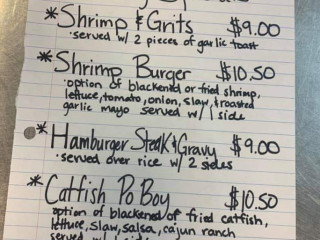 *Shrimp & Grits $9.00
·served w/ 2 pieces of garlic toast
*Shrimp Burger $10.50
·option of blackened or fried shrimp,
lettuce, tomato, onion, slaw, & roasted
garlic mayo served w/ 1 side
*Hamburger Steak & Gravy $9.00
·served over rice w/ 2 sides
*Catfish Po Boy $10.50
option of blackened of fried catfish,
lettuce, slaw, salsa, cajun ranch
served w/ 1 side